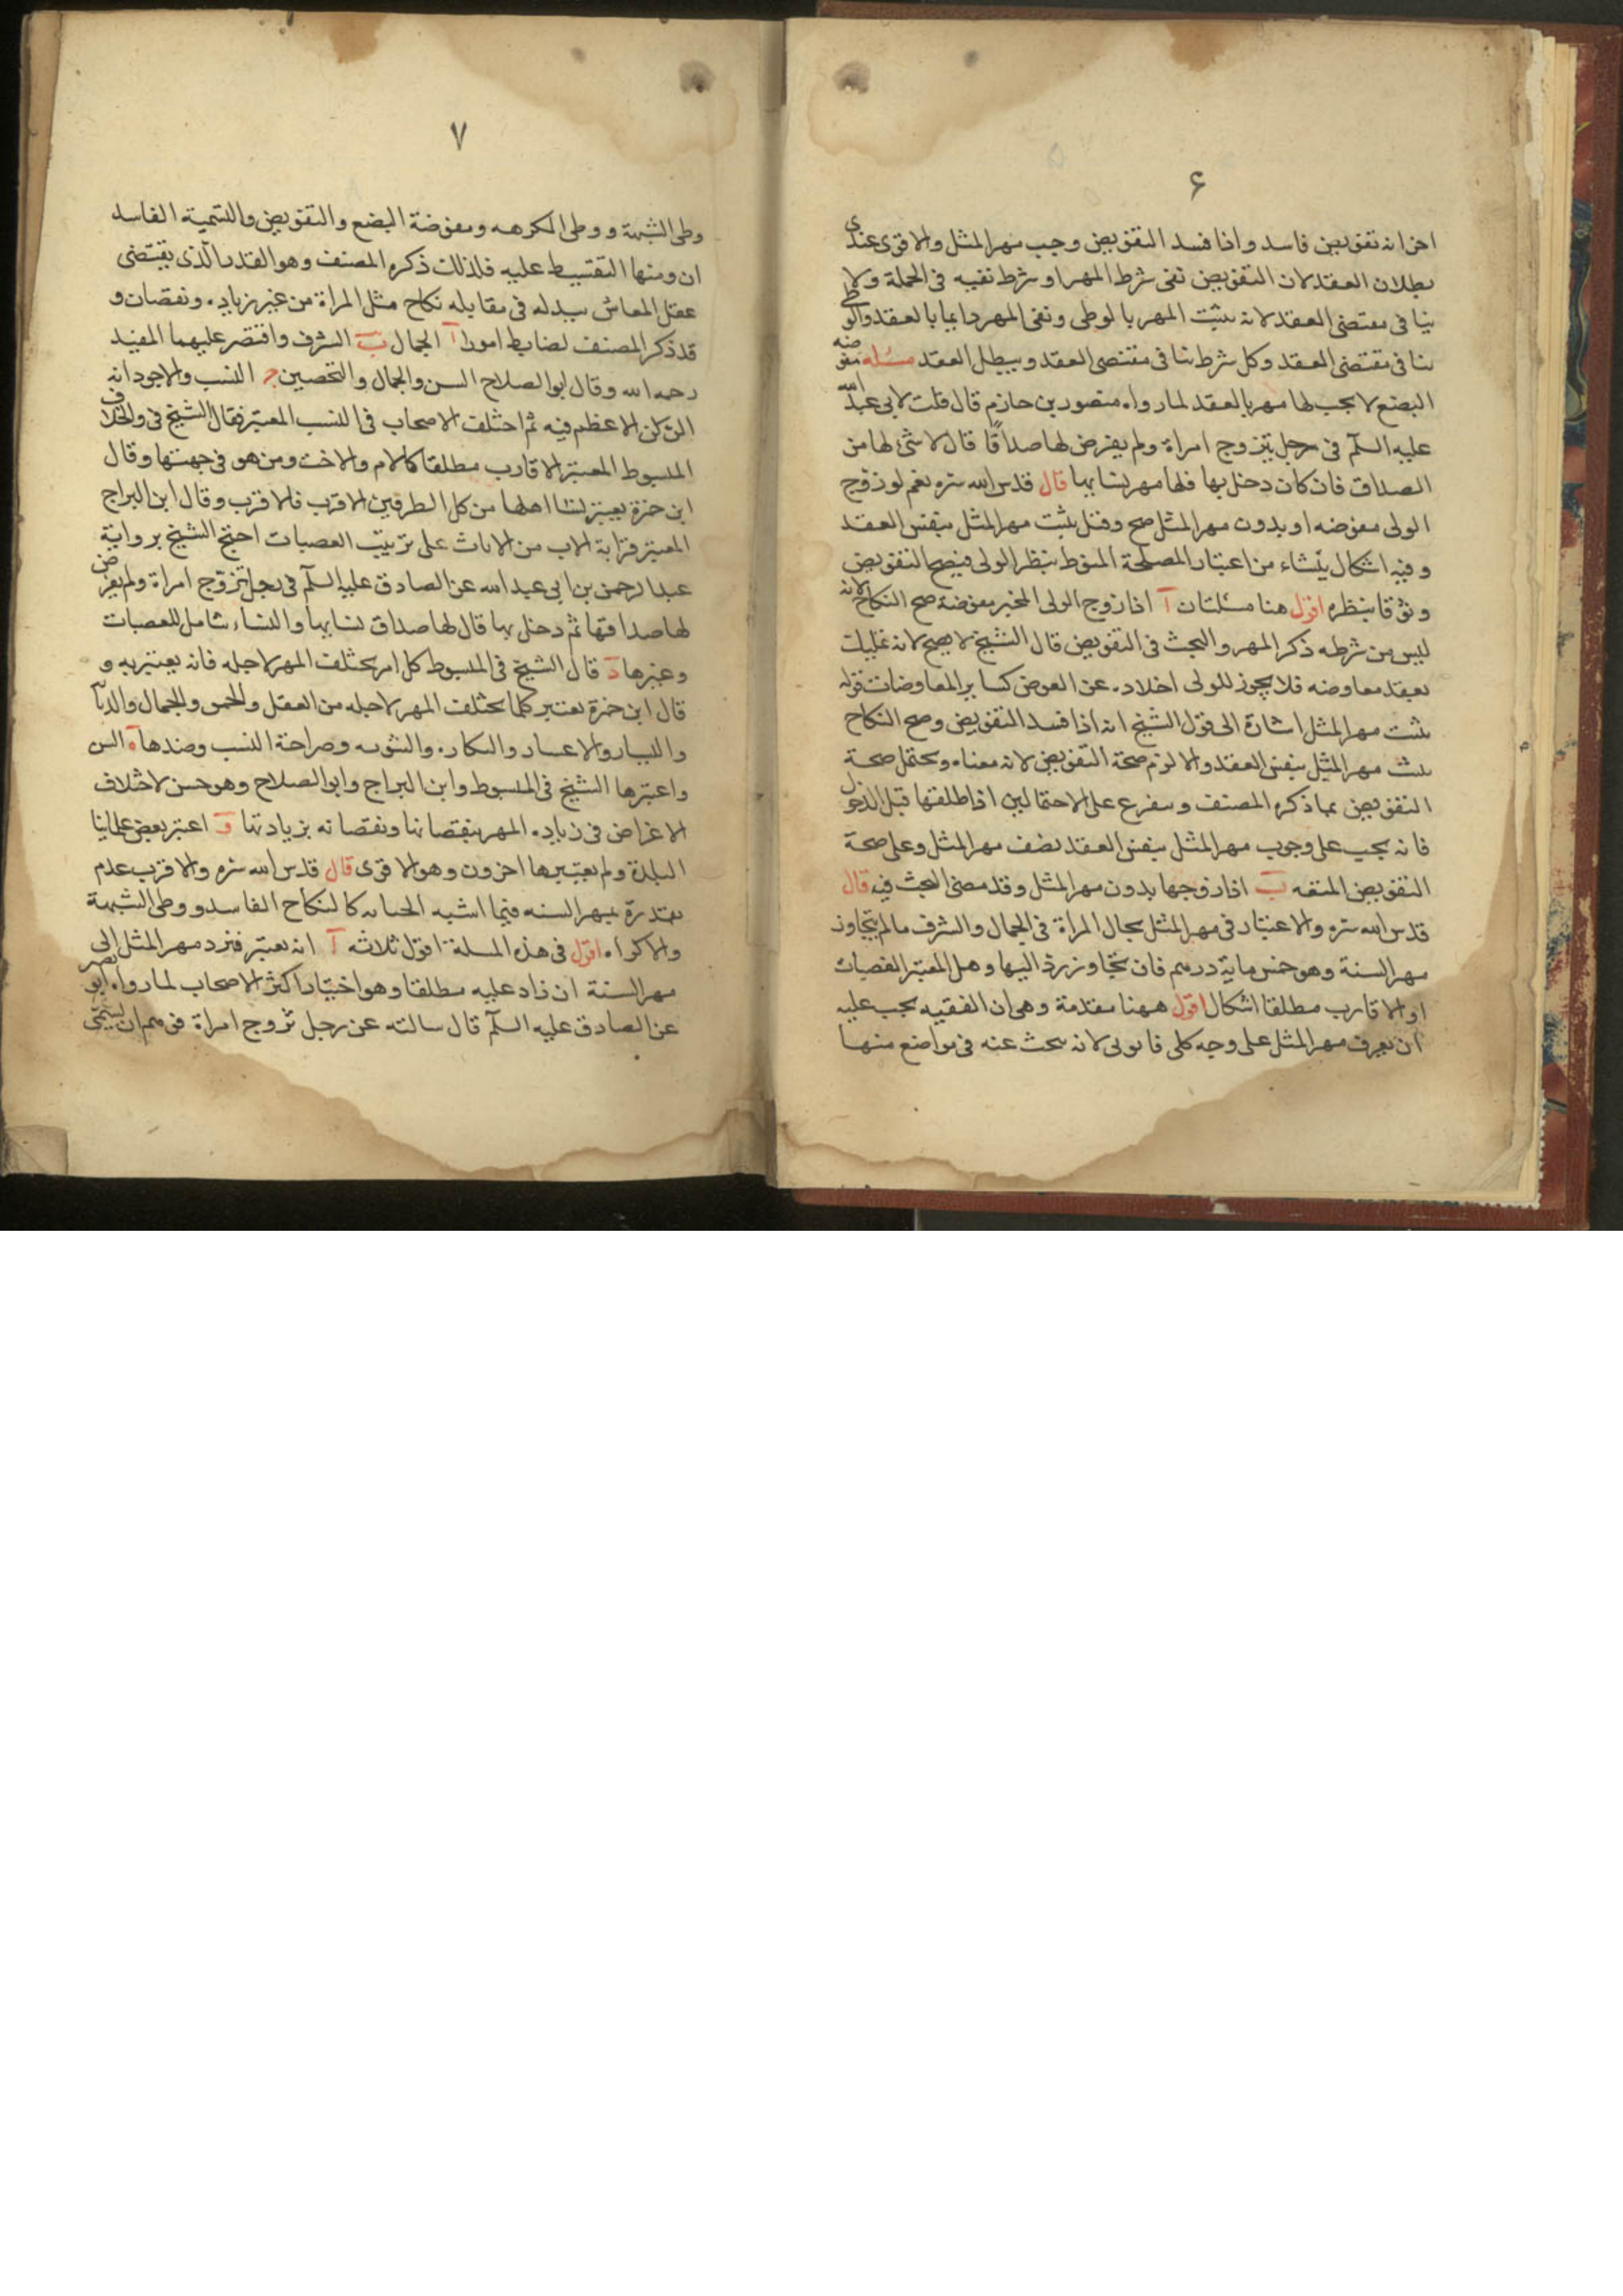 ۶
اخر انه تفويض فاسد واذا فسد التفويض وجب مهر المثل والاقوى عندى
بطلان العقد لان التفويض نفى شرط المهر او شرط نفيه فى الجملة ولا
ينافى مقتضى العقد لانه يثبت المهر بالوطى ونفى المهر دايما بالعقد والوطى
ينافى مقتضى العقد وكل شرط ينافى مقتضى العقد ويبطل العقد مسئله مفوضه
البضع لا يجب لها مهر بالعقد لما رواه منصور بن حازم قال قلت لابى عبد الله
عليه السلم فى رجل يتزوج امراة ولم يفرض لها صداقًا قال لا شئ لها من
الصداق فان كان دخل بها فلها مهر نسايها قال قدس الله سره نعم لو زوج
الولى مفوضه او بدون مهر المثل صح وقيل يثبت مهر المثل بنفس العقد
وفيه اشكال ينشاء من اعتبار المصلحة المنوط بنظر الولى فيصح التفويض
وثوقا بنظره اقول هنا مسئلتان آ اذا زوج الولى المخير مفوضة صح النكاح لانه
ليس من شرطه ذكر المهر والبحث فى التفويض قال الشيخ لا يصح لانه غليات
بعقد معاوضه فلا يجوز للولى اخلاده عن العوض كساير المعاوضات قوله
يثبت مهر المثل اشارة الى قول الشيخ انه اذا فسد التفويض وصح النكاح
يثبت مهر المثل بنفس العقد والا لزم صحة التفويض لانه معناه ويحتمل صحة
التفويض بما ذكره المصنف ويتفرع على الاحتمالين اذا طلقها قبل الدخول
فانه يجب على وجوب مهر المثل بنفس العقد نصف مهر المثل وعلى صحة
التفويض المتعه ب اذا زوجها بدون مهر المثل وقد مضى البحث فيه قال
قدس الله سره والاعتبار فى مهر المثل بحال المراة فى الجمال والشرف مالم يتجاوز
مهر السنة وهو خمس ماية درهم فان تجاوز رد اليها وهل المعتبر العصبات
او الاقارب مطلقا اشكال اقول ههنا مقدمة وهى ان الفقيه يجب عليه
ان يعرف مهر المثل على وجه كلى قانونى لانه يبحث عنه فى مواضع منها
۷
وطى الشبهة ووطى المكرهه ومفوضة البضع والتفويض والتسمية الفاسد
ان ومنها التقسيط عليه فلذلك ذكره المصنف وهو القدر الذى يقتضى
عقل المعاش ببدله فى مقابله نكاح مثل المراة من غير زياده ونقصان و
قد ذكر المصنف لضابط امورا آ الجمال ب الشرف واقتصر عليهما المفيد
رحمه الله وقال ابو الصلاح السن والجمال والتخصين ج النسب والاجود انه
الركن الاعظم فيه ثم اختلف الاصحاب فى النسب المعتبر فقال الشيخ فى والخلاف
المبسوط المعتبر الاقارب مطلقا كالام والاخت ومن هو فى جهتها وقال
ابن حمزة يعتبر لنسا اهلها من كل الطرفين الاقرب فالاقرب وقال ابن البراج
المعتبر قرابة الاب من الاناث على ترتيب العصبات احتج الشيخ برواية
عبد الرحمن بن ابى عبد الله عن الصادق عليه السلم فى رجل تزوج امراة ولم يفرض
لها صداقها ثم دخل بها قال لها صداق نسايها والنساء شامل للعصبات
وغيرها د قال الشيخ فى المبسوط كل امر يختلف المهر لاجله فانه يعتبر به و
قال ابن حمزة يعتبر كلما يختلف المهر لاجله من العقل والحمق والجمال والدمآ
واليسار والاعسار والبكاره والثوبه وصراحة النسب وضدها ه السن
واعتبرها الشيخ فى المبسوط وابن البراج وابو الصلاح وهو حسن لاختلاف
الاغراض فى زياده المهر بنقصانها ونقصانه بزيادتها و اعتبر بعض علمائنا
البلدة ولم يعتبرها اخرون وهو الاقوى قال قدس الله سره والاقرب عدم
تقدرة بمهر السنه فيما اشبه الجنايه كالنكاح الفاسد ووطى الشبهة
والاكراه اقول فى هذه المسلة اقول ثلاثه آ انه يعتبر فيرد مهر المثل الى
مهر السنة ان زاد عليه مطلقا وهو اختيار اكثر الاصحاب لما رواه ابو بصير
عن الصادق عليه السلم قال سالته عن رجل تزوج امراة فوهم ان يسمى